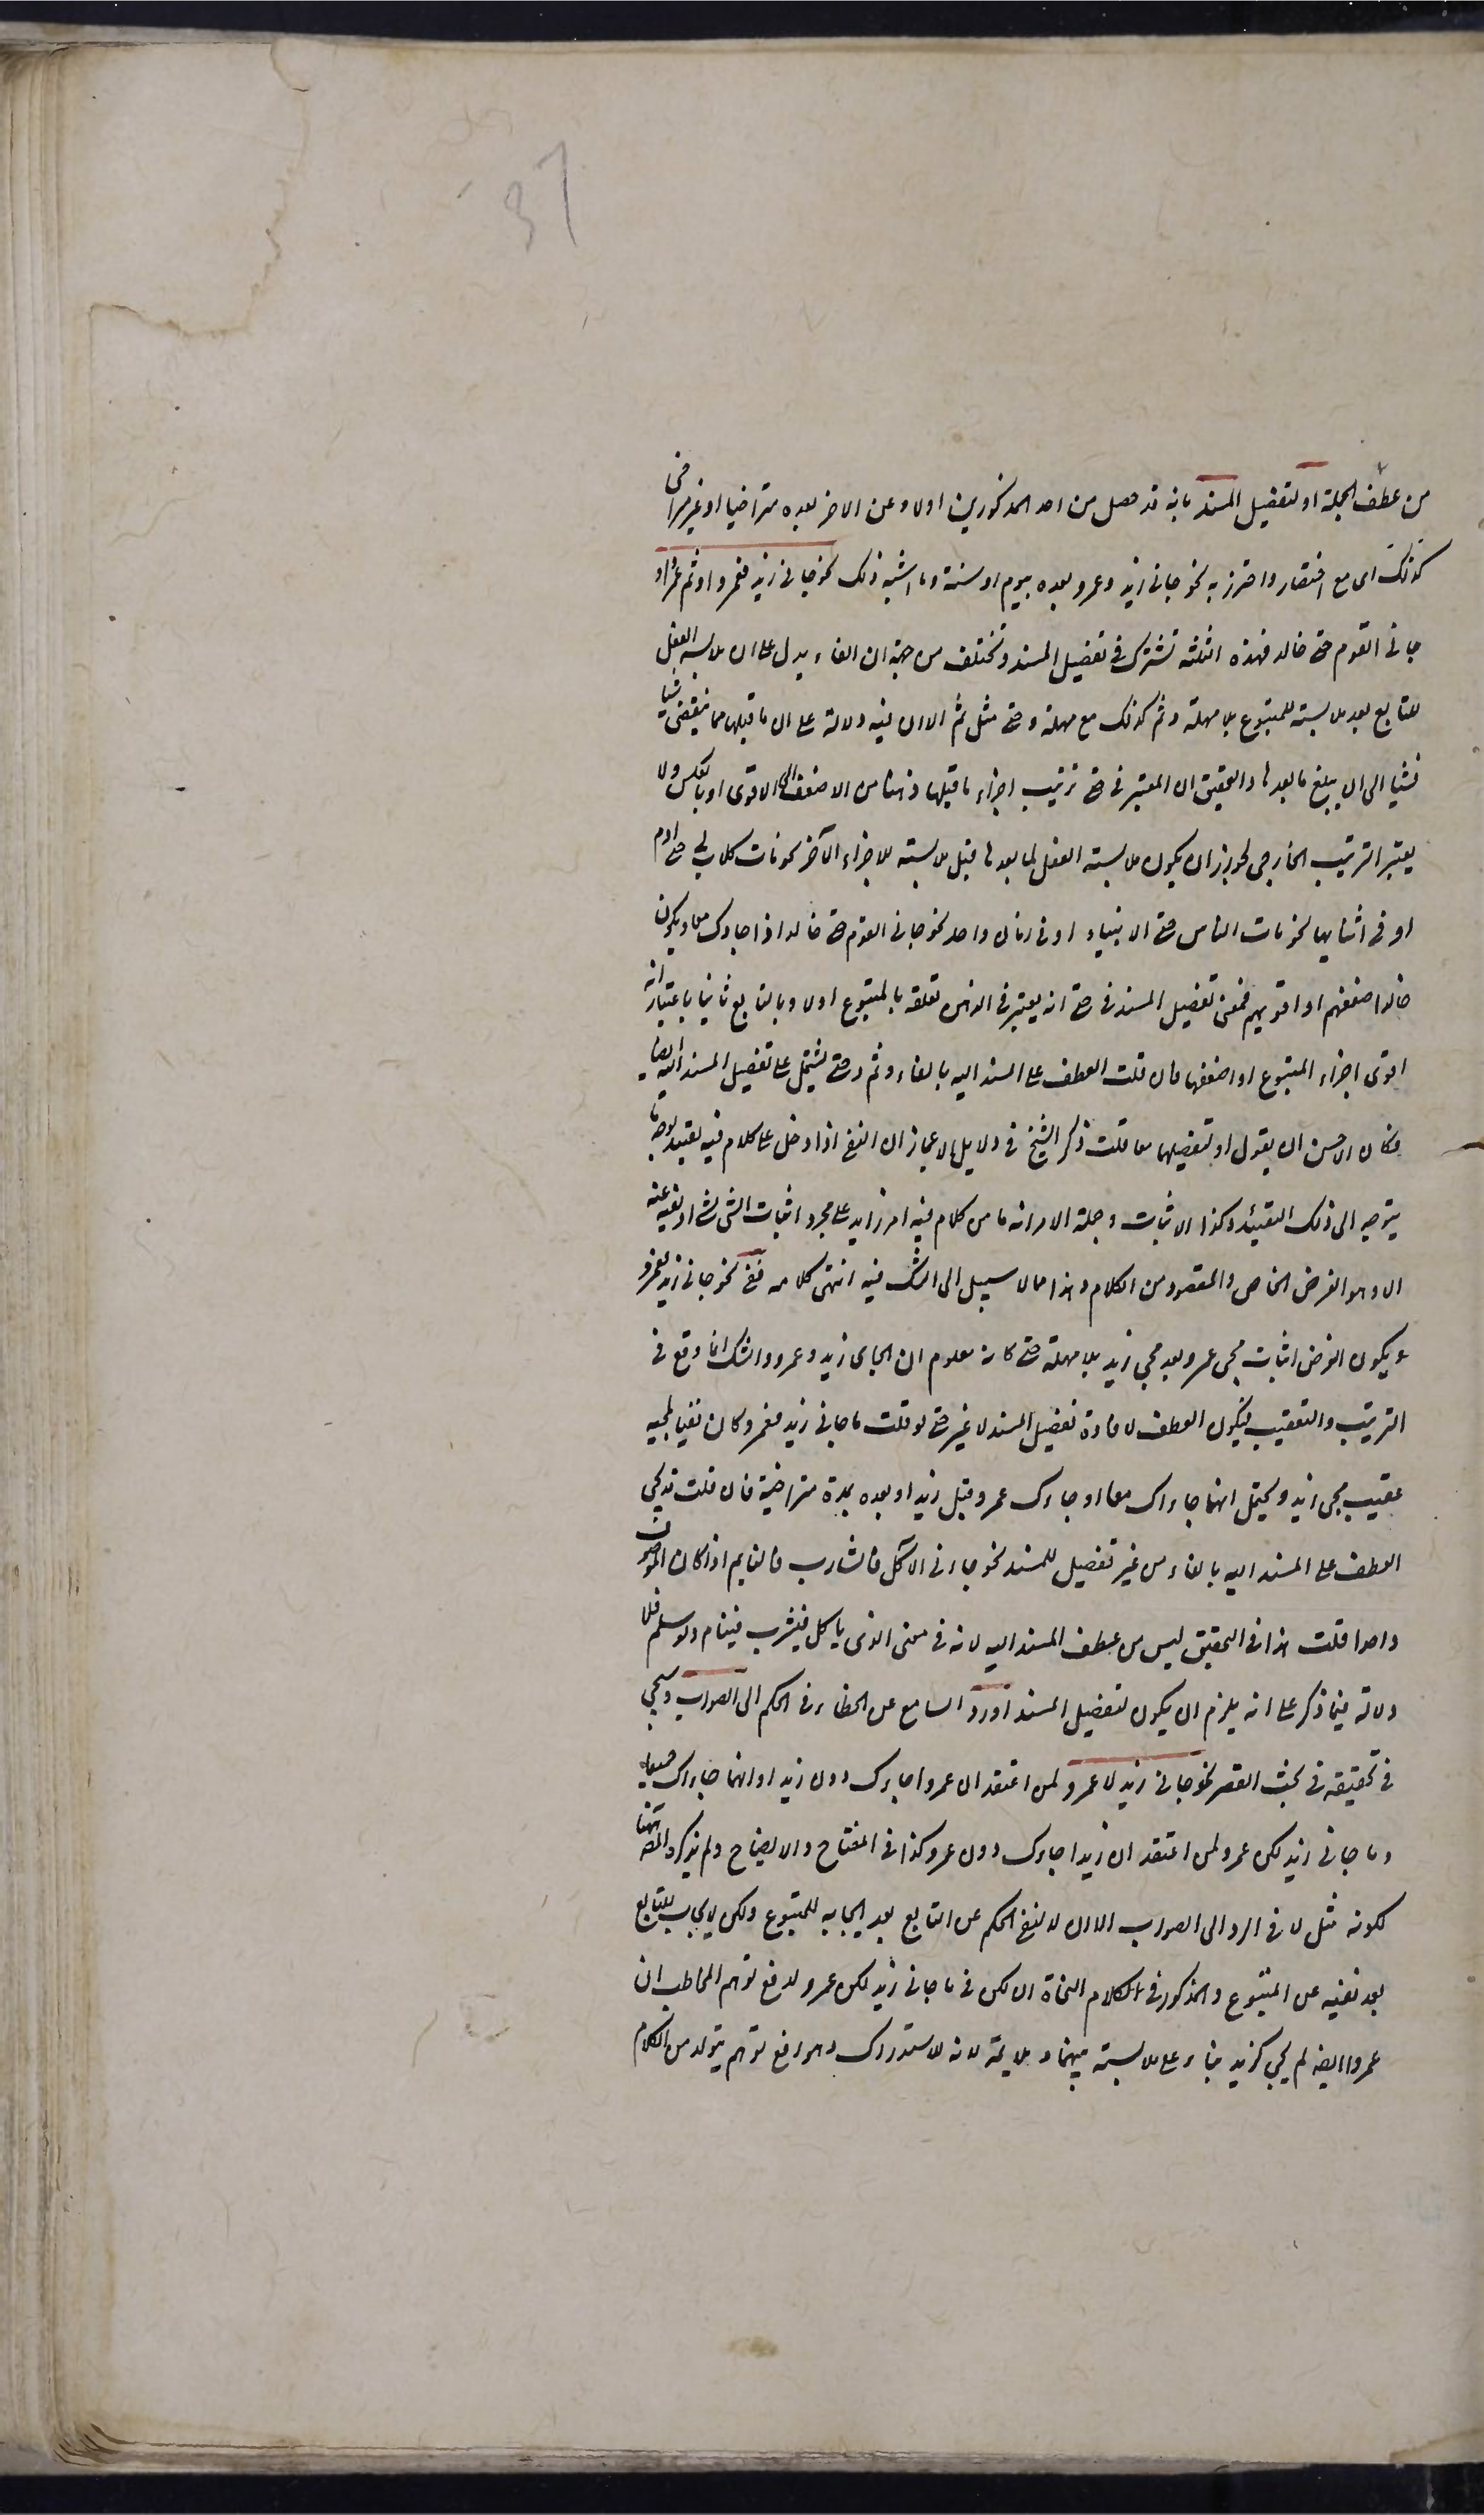 37
من عطف الجملة او لتفصيل المسند بانه قد حصل من احد المذكورين اولا وعن الاخر بعده متراخيا او غير متراخ
كذلك اى مع اختصار واحترز به نحو جانى زيد وعمرو بعده بيوم او سنة وما اشبه ذلك نحو جانى زيد فعمرو او ثم عمرو او
جانى القوم حتى خالد فهذه الثلثه تشترك فى تفصيل المسند وتختلف من جهة ان الفاء يدل على ان ملابسة الفعل
للتابع بعد ملابسته للمتبوع بلا مهلة وثم كذلك مع مهلة وحتى مثل ثم الا ان فيه دلالة على ان ما قبلها مما ينقضى شيا
فشيا الى ان يبلغ ما بعدها والتحقيق ان المعتبر فى حتى ترتيب اجزاء ما قبلها ذهنا من الاضعف الى الاقوى او بالعكس ولا
يعتبر الترتيب الخارجى لجواز ان يكون ملابسة الفعل لما بعدها قبل ملابسته للاجزاء الآخر نحو مات كل اب لى حتى ادم
او فى اثنايها نحو مات الناس حتى الانبياء او فى زمان واحد نحو جانى القوم حتى خالد اذا جاوك معا ويكون
خالد اضعفهم او اقويهم فمعنى تفصيل المسند فى حتى انه يعتبر فى الذهن تعلقه بالمتبوع اولا وبالتابع ثانيا باعتبار انه
اقوى اجزاء المتبوع او اضعفها فان قلت العطف على المسند اليه بالفاء وثم وحتى يشتمل على تفصيل المسند اليه ايضا
فكان الاحسن ان يقول او لتفصيلهما معا قلت ذكر الشيخ فى دلايل الاعجاز ان النفى اذا دخل على كلام فيه تقييد بوجه ما
يتوجه الى ذلك التقييد وكذا الاثبات وجملة الامر انه ما من كلام فيه امر زايد على مجرد اثبات الشى لشى او نفيه عنه
الا وهو الغرض الخاص والمقصود من الكلام وهذا مما لا سبيل الى الشك فيه انتهى كلامه ففى نحو جانى زيد فعمرو
يكون الغرض اثبات مجى عمرو بعد مجى زيد بلا مهلة حتى كانه معلوم ان الجاى زيد وعمرو والشك انما وقع فى
الترتيب والتعقيب فيكون العطف لافادة تفصيل المسند لا غير حتى لو قلت ما جانى زيد فعمرو كان نفيا لمجيه
عقيب مجى زيد ويحتمل انهما جاءاك معا او جاءك عمرو قبل زيد او بعده بمدة متراخية فان قلت قد يجى
العطف على المسند اليه بالفاء من غير تفصيل للمسند نحو جاءنى الآكل فالشارب فالنايم اذا كان الموصوف
واحدا قلت هذا فى التحقيق ليس من عطف المسند اليه لانه فى معنى الذى ياكل فيشرب فينام ولو سلم فلا
دلالة فيما ذكر على انه يلزم ان يكون لتفصيل المسند او رد السامع عن الخطاء فى الحكم الى الصواب وسيجى
فى تحقيقه فى بحث القصر نحو جانى زيد لا عمرو لمن اعتقد ان عمروا جاءك دون زيد او انهما جاءاك جميعا
وما جانى زيد لكن عمرو لمن اعتقد ان زيدا جاءك دون عمرو كذا فى المفتاح والايضاح ولم يذكره المصنف ههنا
لكونه مثل لا فى الرد الى الصواب الا ان لا لنفى الحكم عن التابع بعد ايجابه للمتبوع ولكن لايجابه للتابع
بعد نفيه عن المتبوع والمذكور فى كلام النحاة ان لكن فى ما جانى زيد لكن عمرو لدفع توهم المخاطب ان
عمروا ايضا لم يجى كزيد بناء على ملابسة بينهما وملايمة لانه للاستدراك وهو رفع توهم يتولد من الكلام